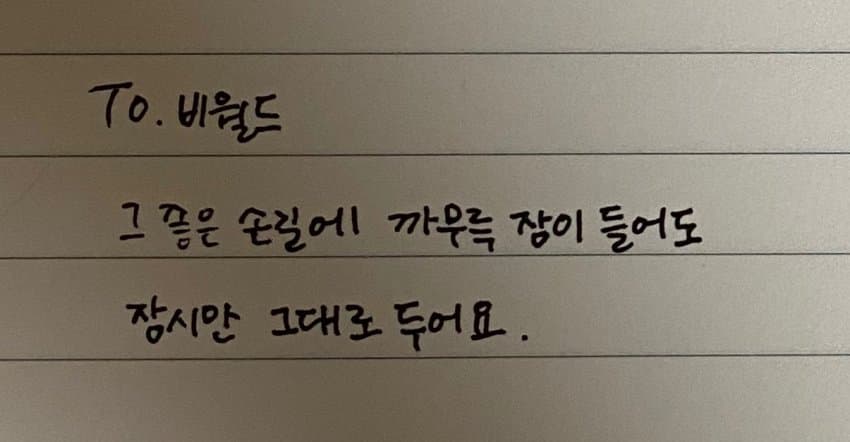 To. 비월드
그 쯤은 손길에 까무륵 잠이 들어도
잠시만 그대로 두어요.